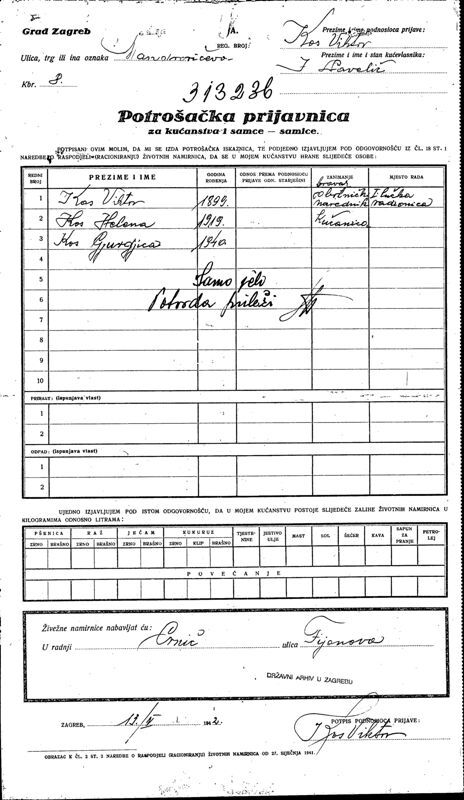 Grad Zagreb
JA.
REG. BROJ:
Prezime i ime podnosioca prijave:
Kos Viktor
Ulica, trg ili ina oznaka
Prezime i ime i stan kućevlasnika:
Kbr. 8.
313236
Potrošačka prijavnica
za kućanstva i samce — samice.
POTPISANI OVIM MOLIM, DA MI SE IZDA POTROŠAČKA ISKAZNICA, TE PODJEDNO IZJAVLJUJEM POD ODGOVORNOŠĆU IZ ČL. 18 ST. 1
NAREDBE O RASPODJELI (RACIONIRANJU) ŽIVOTNIH NAMIRNICA, DA SE U MOJEM KUĆANSTVU HRANE SLIJEDEĆE OSOBE:
REDNI BROJ PREZIME I IME GODINA ROĐENJA ODNOS PREMA PODNOSIOCU PRIJAVE ODN. STARJEŠINI ZANIMANJE MJESTO RADA
bravar
1 Kos Viktor 1899. obrtnički narednik radionica
2 Kos Helena 1919. kućanica
3 Kos Gjurgjica 1940
4
5 Samo jelo
6 Potvrda priloži
7
8
9
10
PRIRAST: (ispunjava vlast)
1
2
ODPAD: (ispunjava vlast)
1
2
UJEDNO IZJAVLJUJEM POD ISTOM ODGOVORNOŠĆU, DA U MOJEM KUĆANSTVU POSTOJE SLIJEDEĆE ZALIHE ŽIVOTNIH NAMIRNICA U
KILOGRAMIMA ODNOSNO LITRAMA:
PŠENICA RAŽ JEČAM KUKURUZ TJESTENINE JESTIVO ULJE MAST SOL ŠEĆER KAVA SAPUN ZA PRANJE PETROLEJ
ZRNO BRAŠNO ZRNO BRAŠNO ZRNO BRAŠNO ZRNO KLIP BRAŠNO
POVEĆANJE
Živežne namirnice nabavljat ću:
U radnji Crnić ulica Fijanova
DRŽAVNI ARHIV U ZAGREBU
ZAGREB, 13/IV 1942.
POTPIS PODNOSIOCA PRIJAVE:
Kos Viktor
OBRAZAC K ČL. 2 ST. 1 NAREDBE O RASPODJELI (RACIONIRANJU) ŽIVOTNIH NAMIRNICA OD 27. SIJEČNJA 1941.